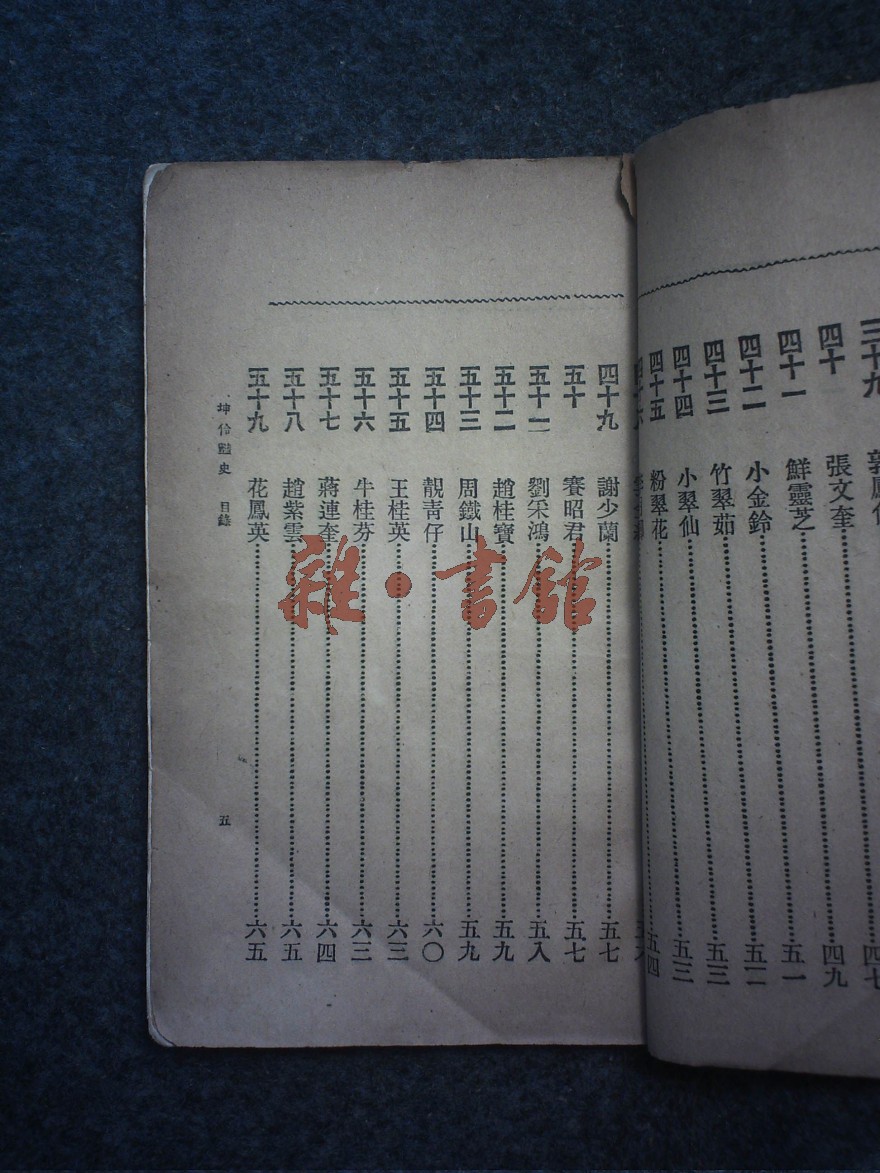 四十 張文奎 四九
四十一 鮮靈芝 五一
四十二 小金鈴 五二
四十三 竹翠茹 五三
四十四 小翠仙 五三
四十五 粉翠花 五四
四十九 謝少蘭 五七
五十 賽昭君 五七
五十一 劉采鴻 五八
五十二 趙桂寶 五九
五十三 周鐵山 五九
五十四 靚青仔 六〇
五十五 王桂英 六三
五十六 牛桂芬 六三
五十七 蔣連奎 六四
五十八 趙紫雲 六五
五十九 花鳳英 六五
坤伶豔史 目錄 五
雜·書館